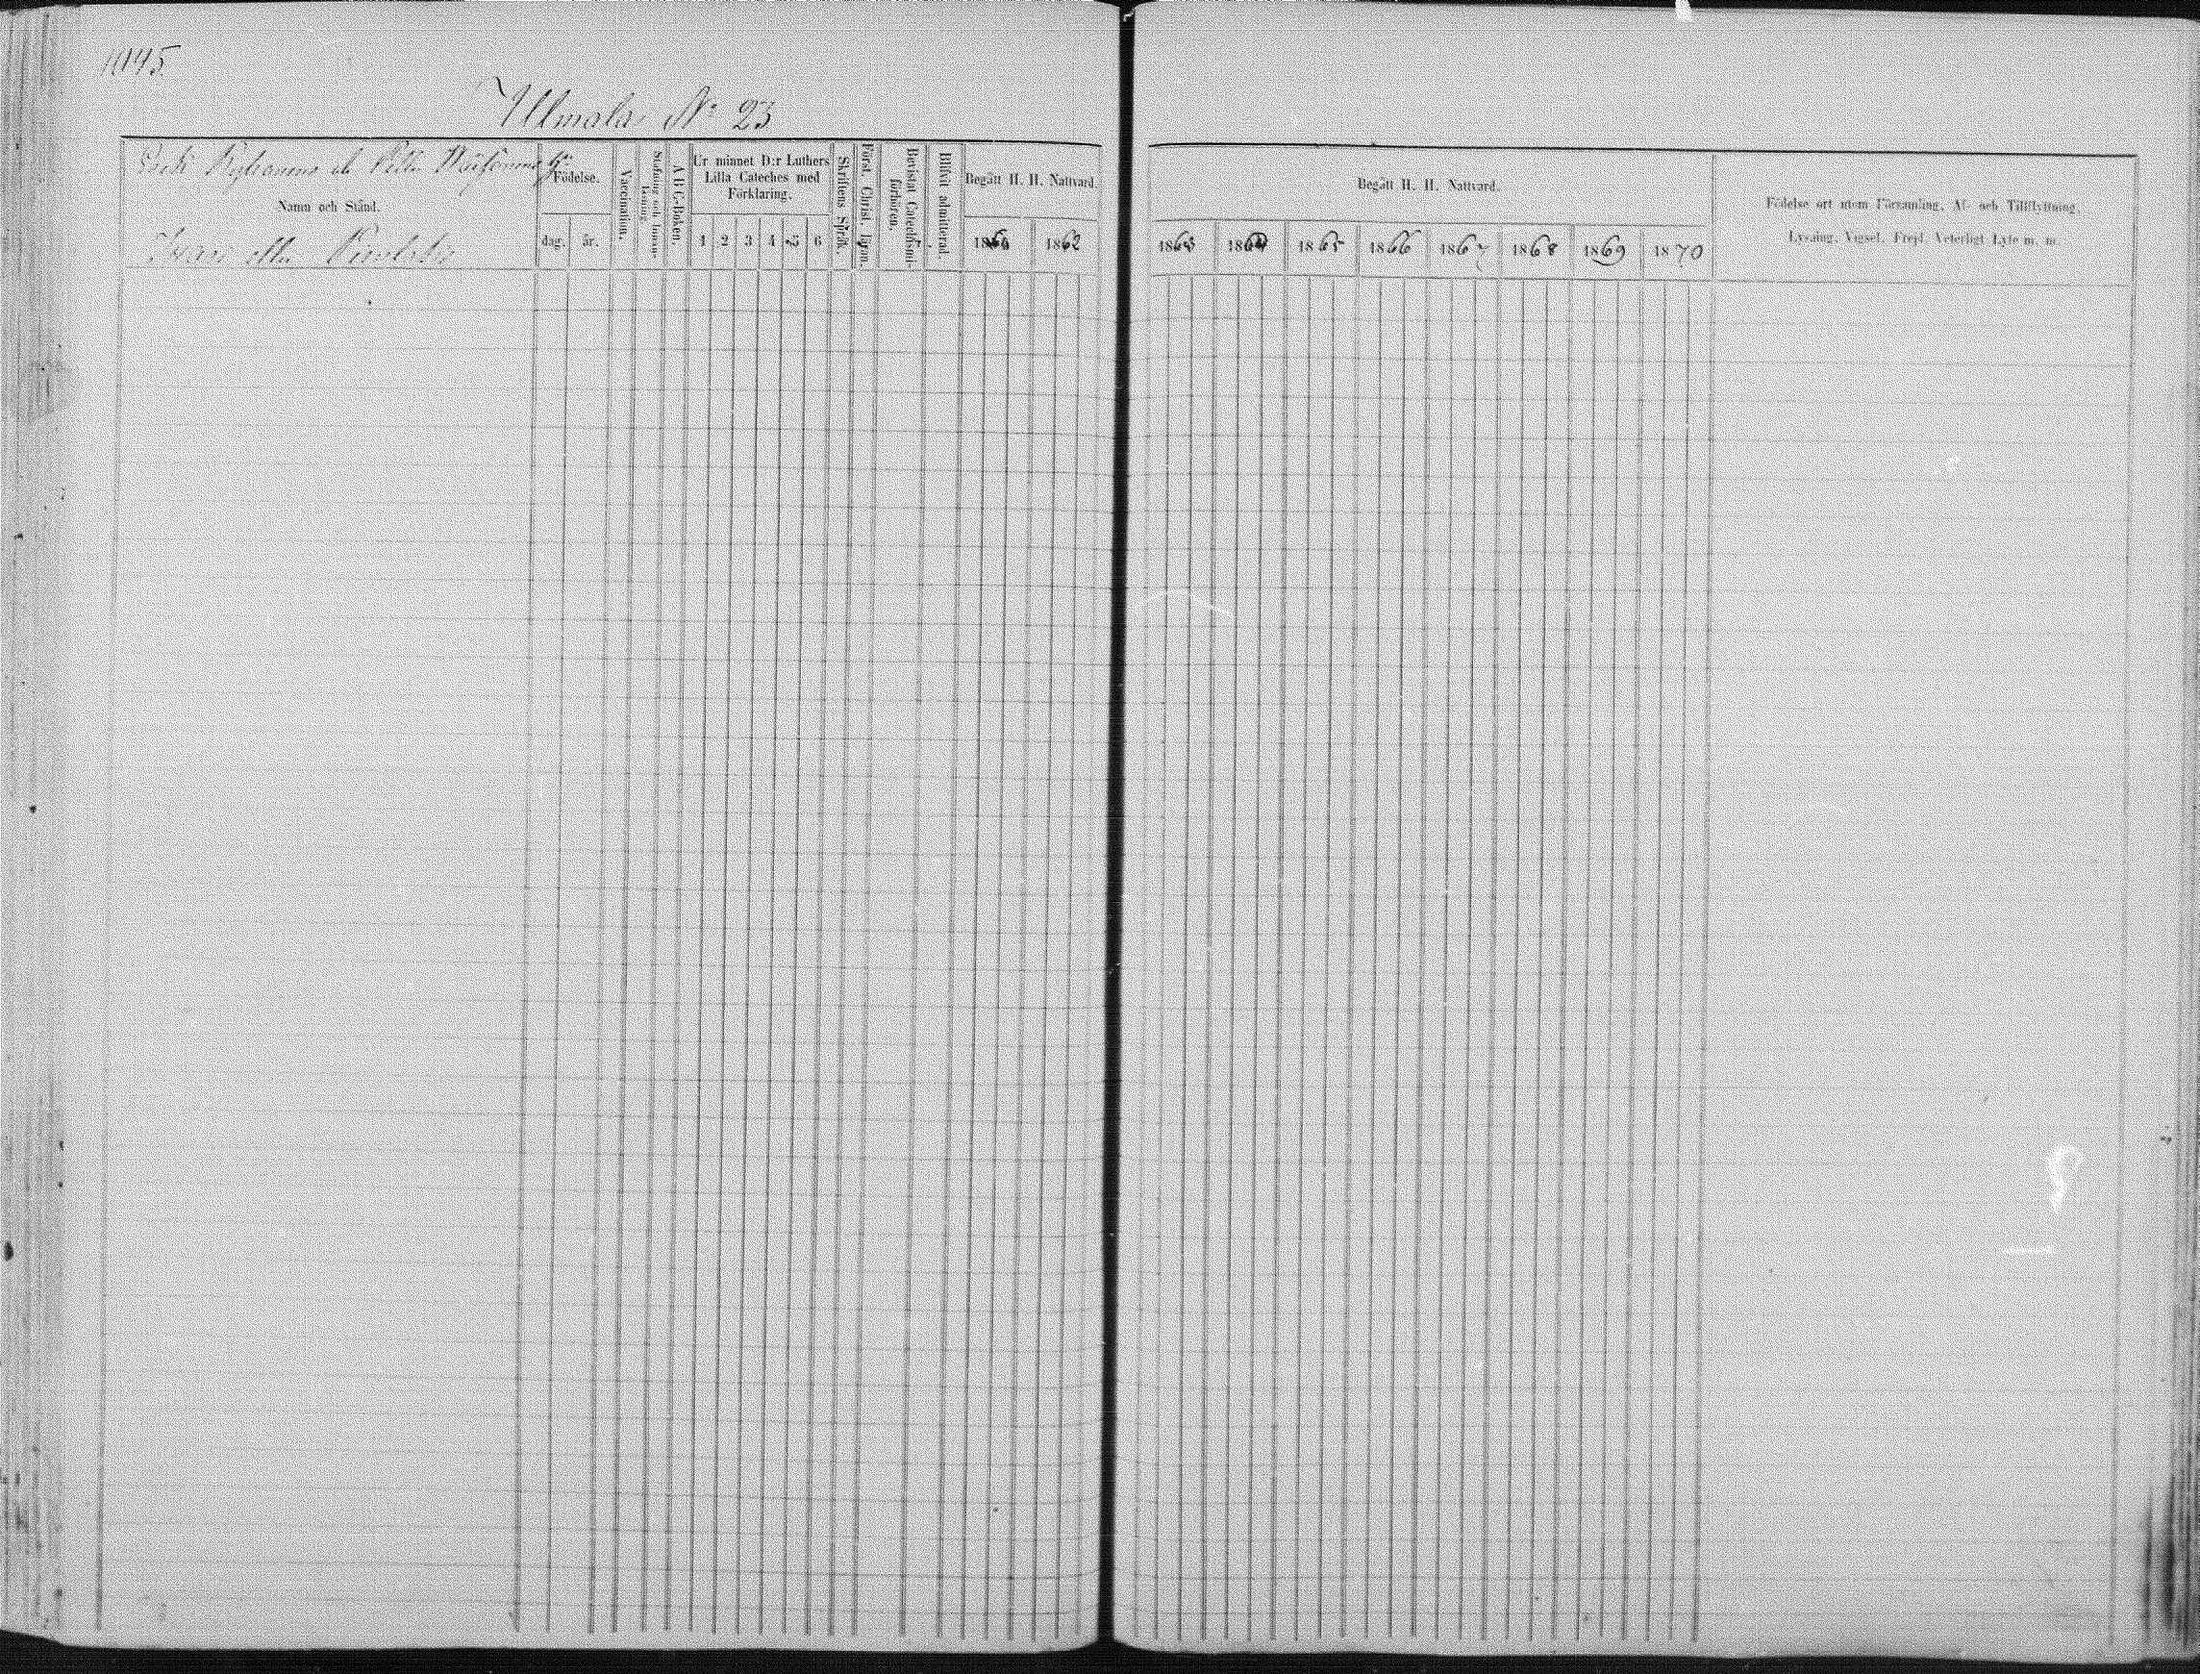 1045
Ullmala N° 23
Namn och Stånd.
Födelse.
dag. år.
Vaccination.
Stafning och Innan-
läsning.
A B C-Boken.
Ur minnet D:r Luthers
Lilla Cateches med
Förklaring.
1 2 3 4 5 6
Skriftens Språk.
Först. Christ. lig:on.
Bevistat Catechismi-
förhören.
Blifvit admitterad.
Begått H. H. Nattvard.
1862
Begått H. H. Nattvard.
1863 1864 1865 1866 1867 1868 1869 1870
Födelse ort utom Församling, Af- och Tillflyttning,
Lysning, Vigsel, Frejd, Veterligt Lyte m. m.